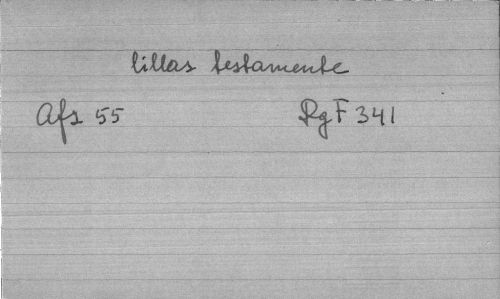 lillas testamente
Afs 55 RgF 341